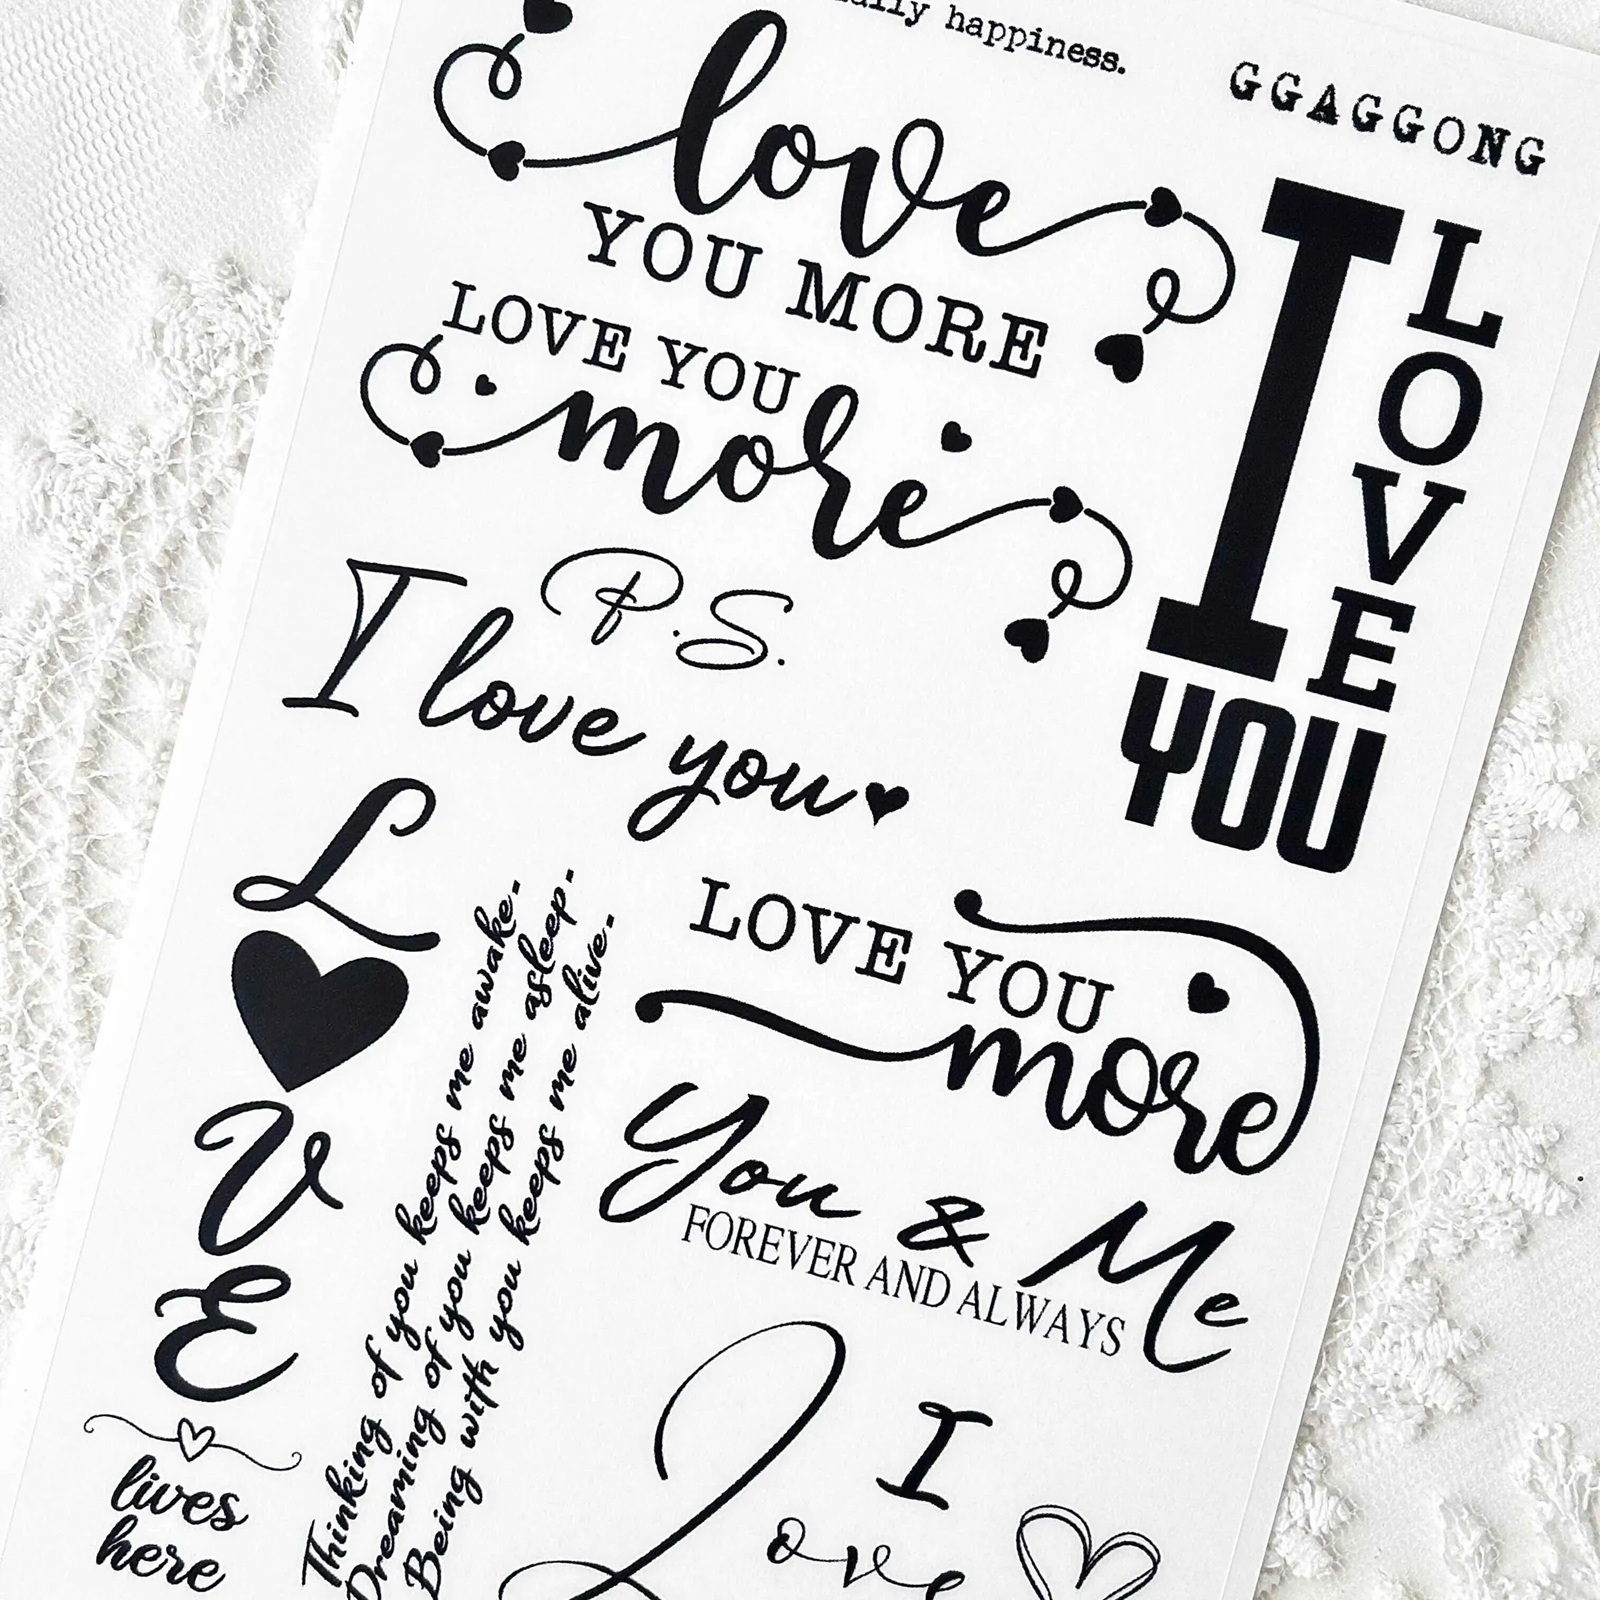 happiness.
GGAGGONG
love
YOU MORE
LOVE YOU
more
I
LOVE
YOU
P.S.
I love you
L
VE
lives
here
Thinking of you keeps me awake.
Dreaming of you keeps me asleep.
Being with you keeps me alive.
LOVE YOU
more
You & Me
FOREVER AND ALWAYS
I
Love